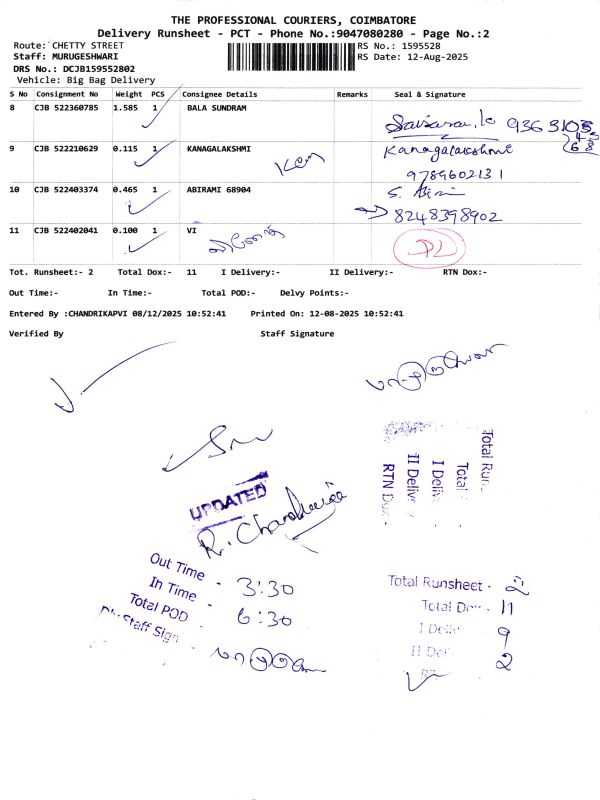 THE PROFESSIONAL COURIERS, COIMBATORE
Delivery Runsheet - PCT - Phone No.:9047080280 - Page No.:2
Route: CHETTY STREET
Staff: MURUGESHWARI
DRS No.: DCJB159552802
Vehicle: Big Bag Delivery
RS No.: 1595528
RS Date: 12-Aug-2025
S No Consignment No Weight PCS Consignee Details Remarks Seal & Signature
8 CJB 522360785 1.585 1 BALA SUNDRAM
93631035
9 CJB 522210629 0.115 1 KANAGALAKSHMI Kanagalakshmi
9789602131
10 CJB 522403374 0.465 1 ABIRAMI 68904
8248398902
11 CJB 522402041 0.100 1 VI
Tot. Runsheet:- 2 Total Dox:- 11 I Delivery:- II Delivery:- RTN Dox:-
Out Time:- In Time:- Total POD:- Delvy Points:-
Entered By :CHANDRIKAPVI 08/12/2025 10:52:41 Printed On: 12-08-2025 10:52:41
Verified By Staff Signature
Total Run
Total
I Deliv
II Delive
RTN Dox
UPDATED
R. Chandrika
Out Time - 3:30
In Time - 6:30
Total POD
Staff Sign
Total Runsheet - 2
Total Dox - 11
I Deliv 9
II Del 2